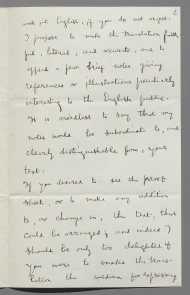 2
work into English, if you do not object.
I propose to make the translation faith-
ful, literal, and accurate, and to
append a few brief notes giving
references or illustrations peculiarly
interesting to the English public.
It is needless to say that my
notes would be subordinate to, and
clearly distinguishable from, your
text.
If you desired to see the proof
sheet, or to make any addition
to, or change in, the text, that
could be arranged; and indeed I
should be only too delighted if
you were to make the trans-
lation the medium for expressing